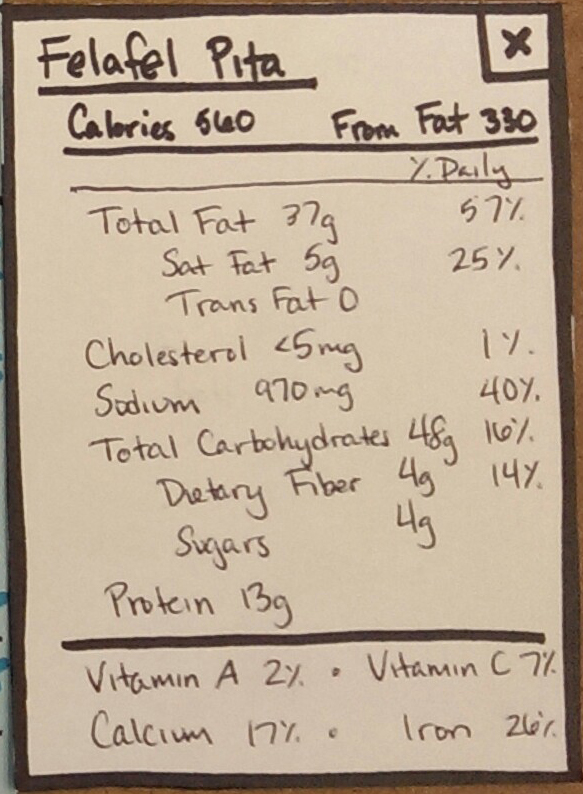 Felafel Pita
x
Calories 560 From Fat 330
% Daily
Total Fat 37g 57%
Sat Fat 5g 25%
Trans Fat 0
Cholesterol <5mg 1%.
Sodium 970mg 40%.
Total Carbohydrates 48g 16%.
Dietary Fiber 4g 14%.
Sugars 4g
Protein 13g
Vitamin A 2% • Vitamin C 7%
Calcium 17% • Iron 26%